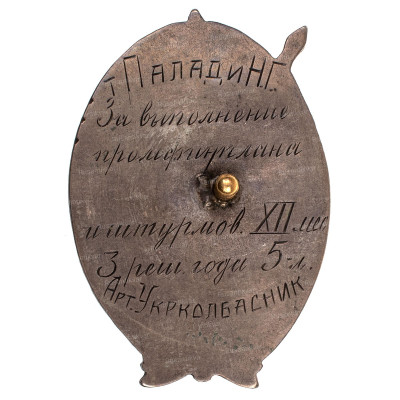 т ПаладиН.Г.
За выполнение
промфинплана
и штурмов. XII мес
3 реш. года 5-л.
Арт. Укрколбасник